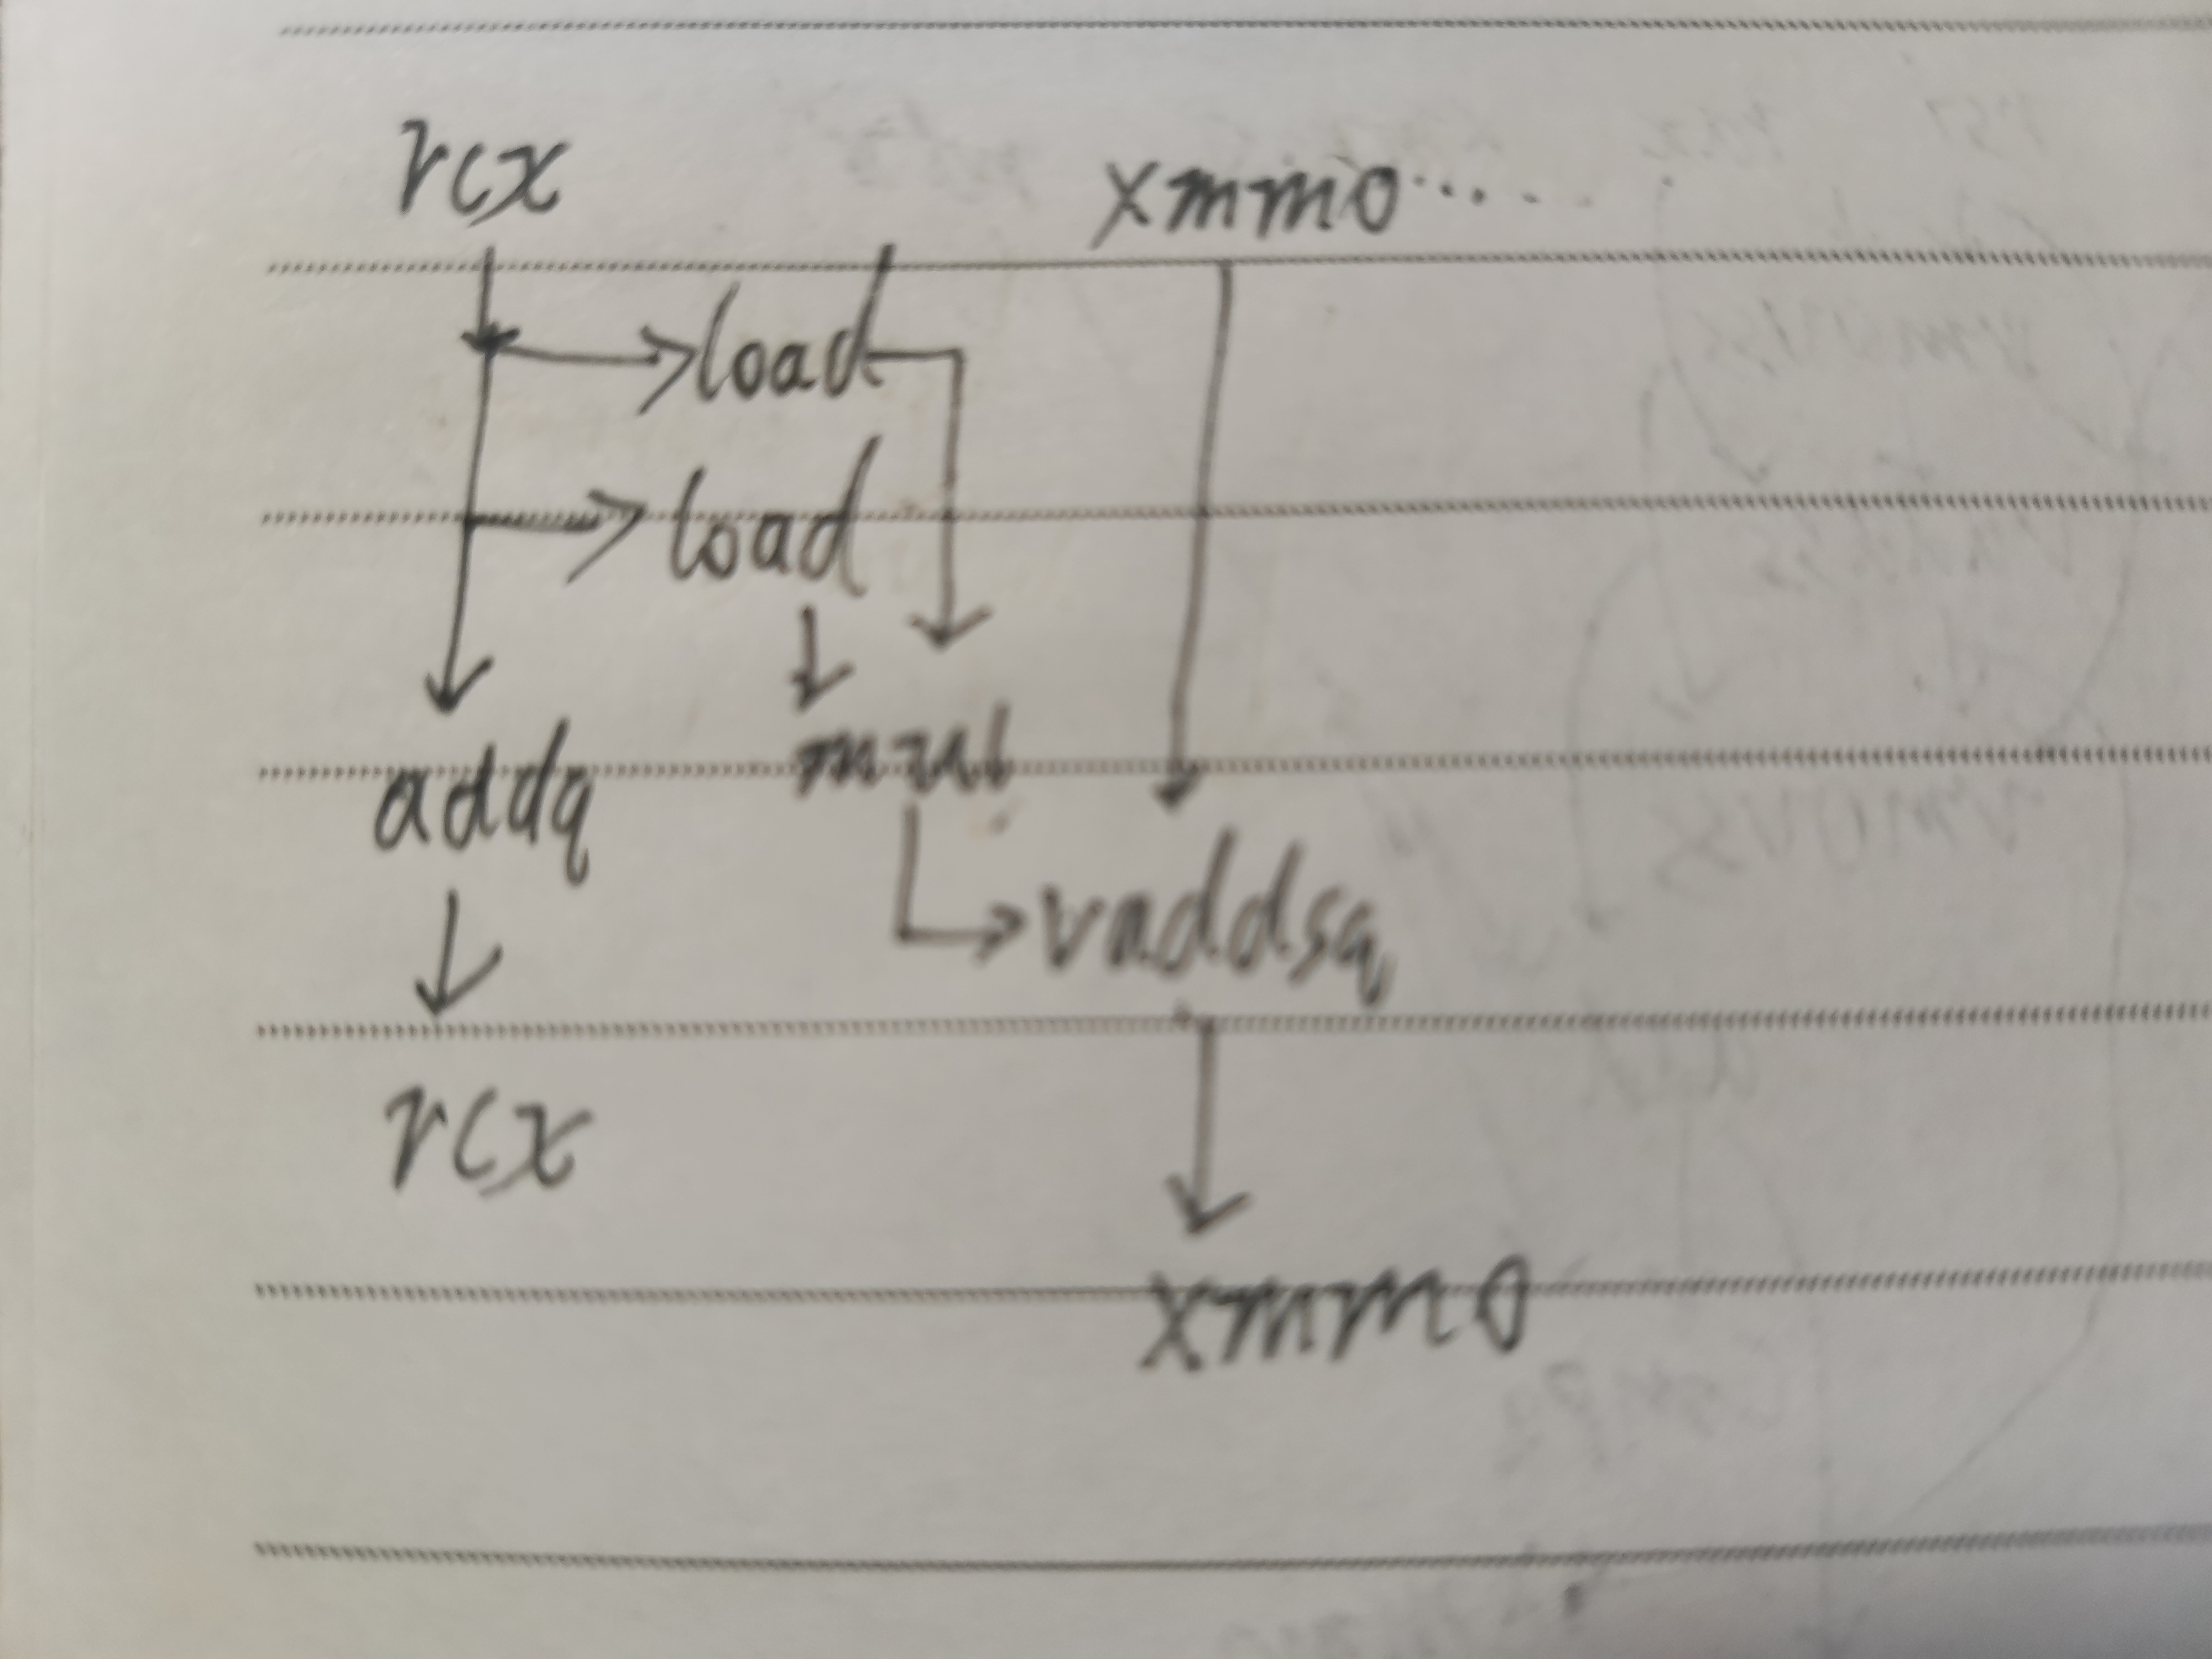 rcx xmm0.....
load
load
addq mul
vaddsq
rcx
xmm0